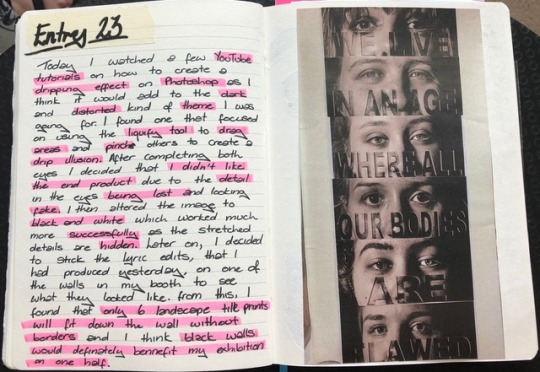 Entry 23
Today I watched a few YouTube
tutorials on how to create a
dripping effect on Photoshop as I
think it would add to the dark
and distorted kind of theme I was
going for. I found one that focused
on using the liquify tool to drag
areas and pinch others to create a
drip illusion. After completing both
eyes I decided that I didn't like
the end product due to the detail
in the eyes being lost and looking
fake. I then altered the image to
black and white which worked much
more successfully as the stretched
details are hidden. Later on, I decided
to stick the lyric edits, that I
had produced yesterday, on one of
the walls in my booth to see
what they looked like. from this, I
found that only 6 landscape prints
will fit down the wall without
borders and I think black walls
would definately bennefit my exhibition
on one half.
WE LIVE
IN AN AGE
WHERE ALL
OUR BODIES
ARE
FLAWED